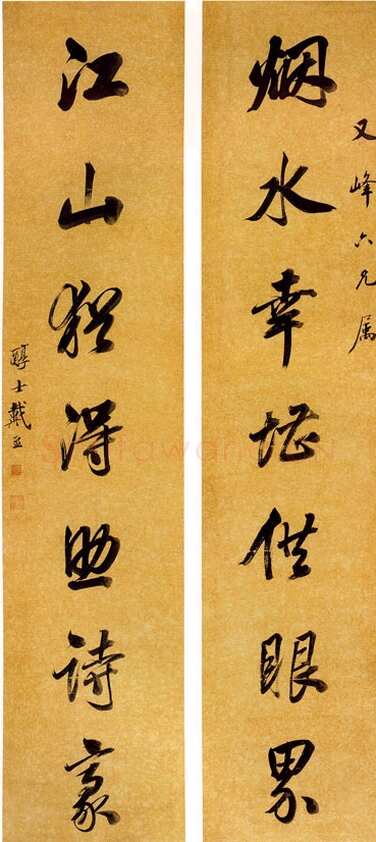 又峰六兄属
烟水幸堪供眼界
江山猶得助詩豪
醇士戴熙